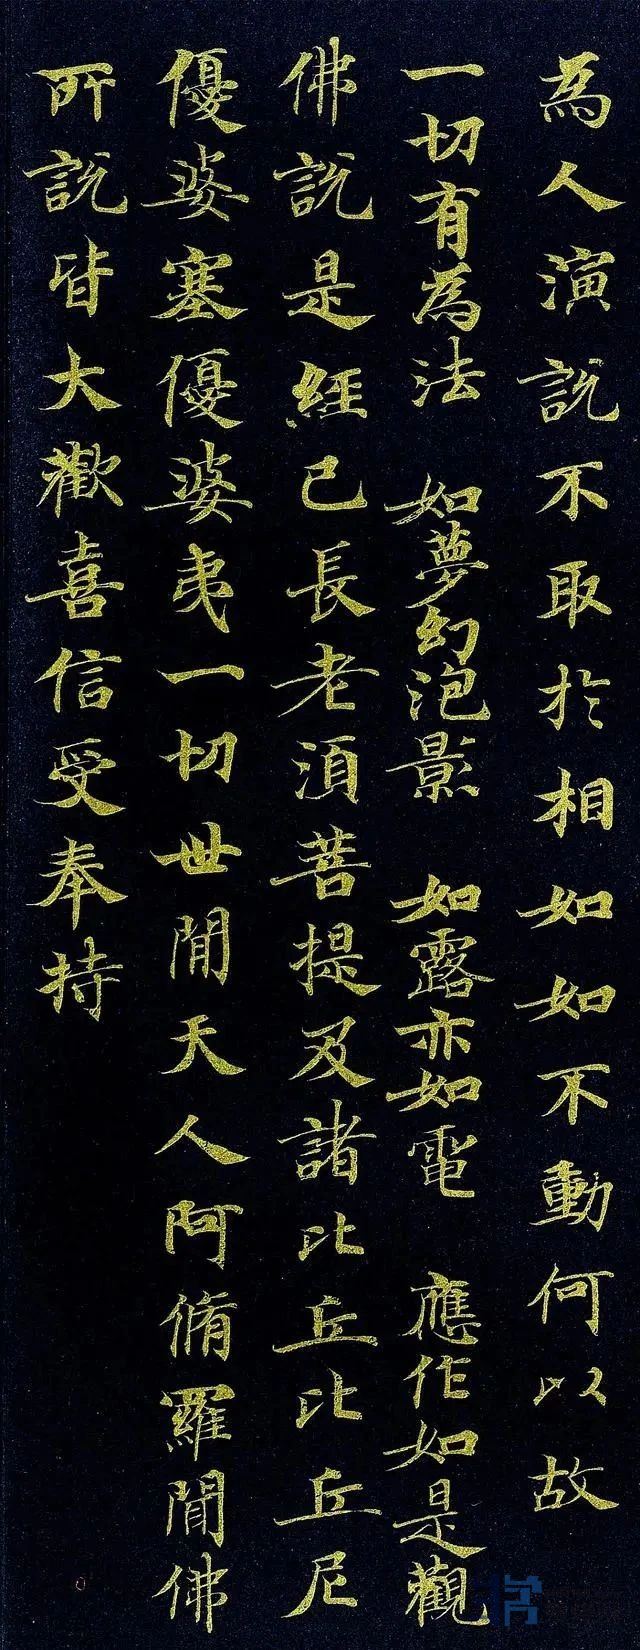 為人演說不取於相如如不動何以故
一切有為法 如夢幻泡影 如露亦如電 應作如是觀
佛說是經已長老須菩提及諸比丘比丘尼
優婆塞優婆夷一切世間天人阿脩羅聞佛
所說皆大歡喜信受奉持